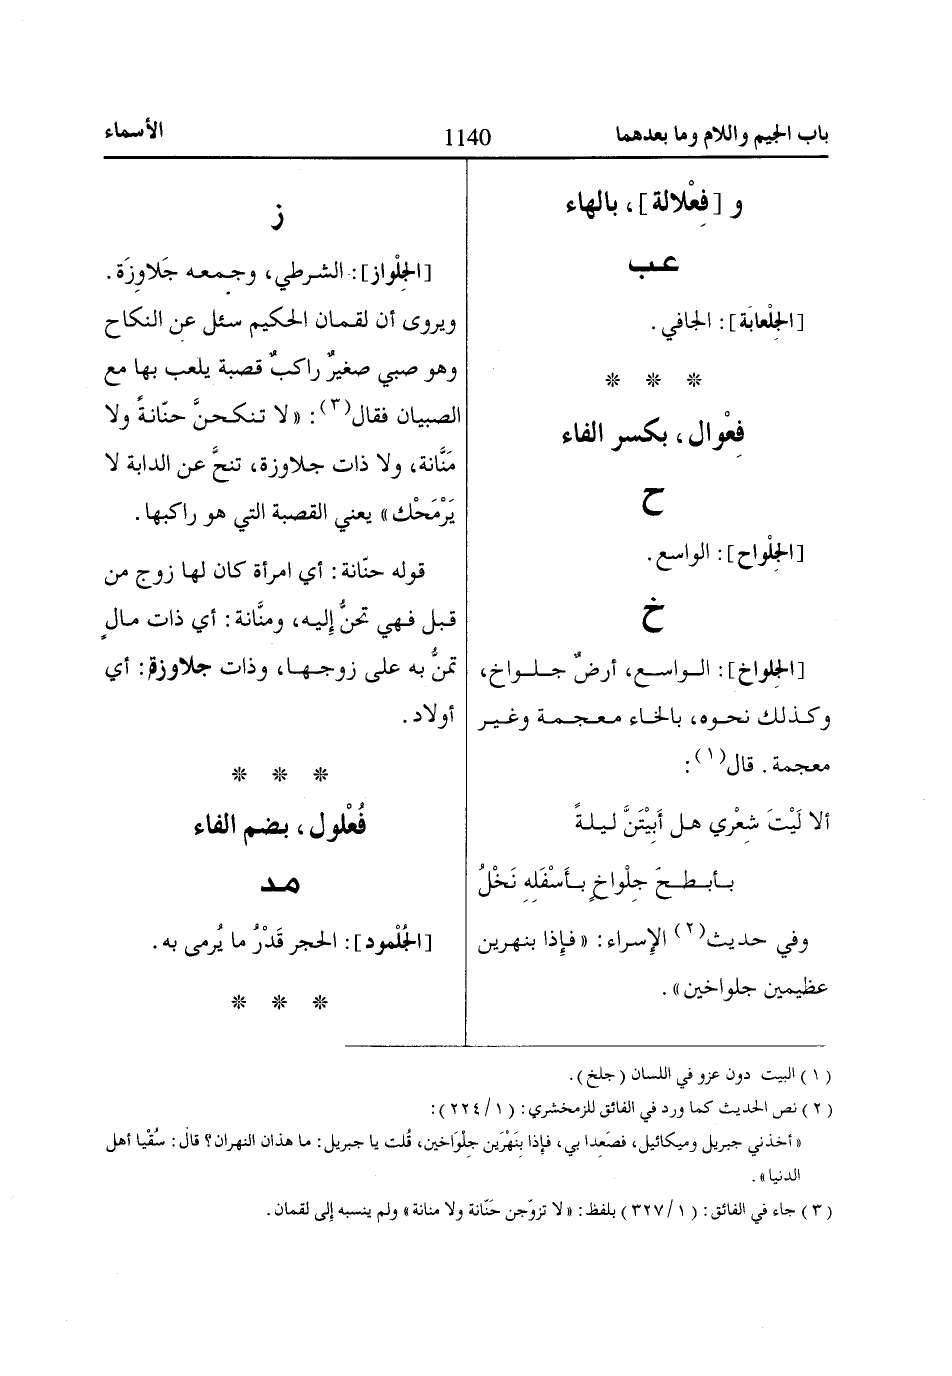 باب الجيم واللام وما بعدهما
1140
الأسماء
و [فِعْلالة]، بالهاء
عب
[الجِلْعابَة]: الجافي.
* * *
فِعْوال، بكسر الفاء
ح
[الجِلْواح]: الواسع.
خ
[الجِلواخ]: الواسع، أرضٌ جلواخ،
وكذلك نحوه، بالخاء معجمة وغير
معجمة. قال(١):
ألا لَيْتَ شِعْري هل أَبِيْتَنَّ ليلةً
بأبطحَ جِلْواخٍ بأسْفَلِهِ نَخْلُ
وفي حديث(٢) الإسراء: «فإذا بنهرين
عظيمين جلواخين».
ز
[الجِلْواز]: الشرطي، وجمعه جَلاوِزَة.
ويروى أن لقمان الحكيم سئل عن النكاح
وهو صبي صغيرٌ راكبٌ قصبة يلعب بها مع
الصبيان فقال(٣): «لا تنكحنَّ حنّانةً ولا
مَنَّانة، ولا ذات جلاوزة، تنحَّ عن الدابة لا
يَرْمَحْك» يعني القصبة التي هو راكبها.
قوله حنّانة: أي امرأة كان لها زوج من
قبل فهي تحنُّ إليه، ومنَّانة: أي ذات مالٍ
تمنُّ به على زوجها، وذات جلاوزة: أي
أولاد.
* * *
فُعْلول، بضم الفاء
مد
[الجُلْمود]: الحجر قَدْرُ ما يُرمى به.
* * *
(١) البيت دون عزو في اللسان (جلخ).
(٢) نص الحديث كما ورد في الفائق للزمخشري: (١/٢٢٤):
«أخذني جبريل وميكائيل، فصَعدا بي، فإذا بنَهْرَين جلْوَاخين، قُلت يا جبريل: ما هذان النهران؟ قال: سُقْيا أهل
الدنيا».
(٣) جاء في الفائق: (١/٣٢٧) بلفظ: «لا تزوّجن حَنّانة ولا منانة» ولم ينسبه إلى لقمان.